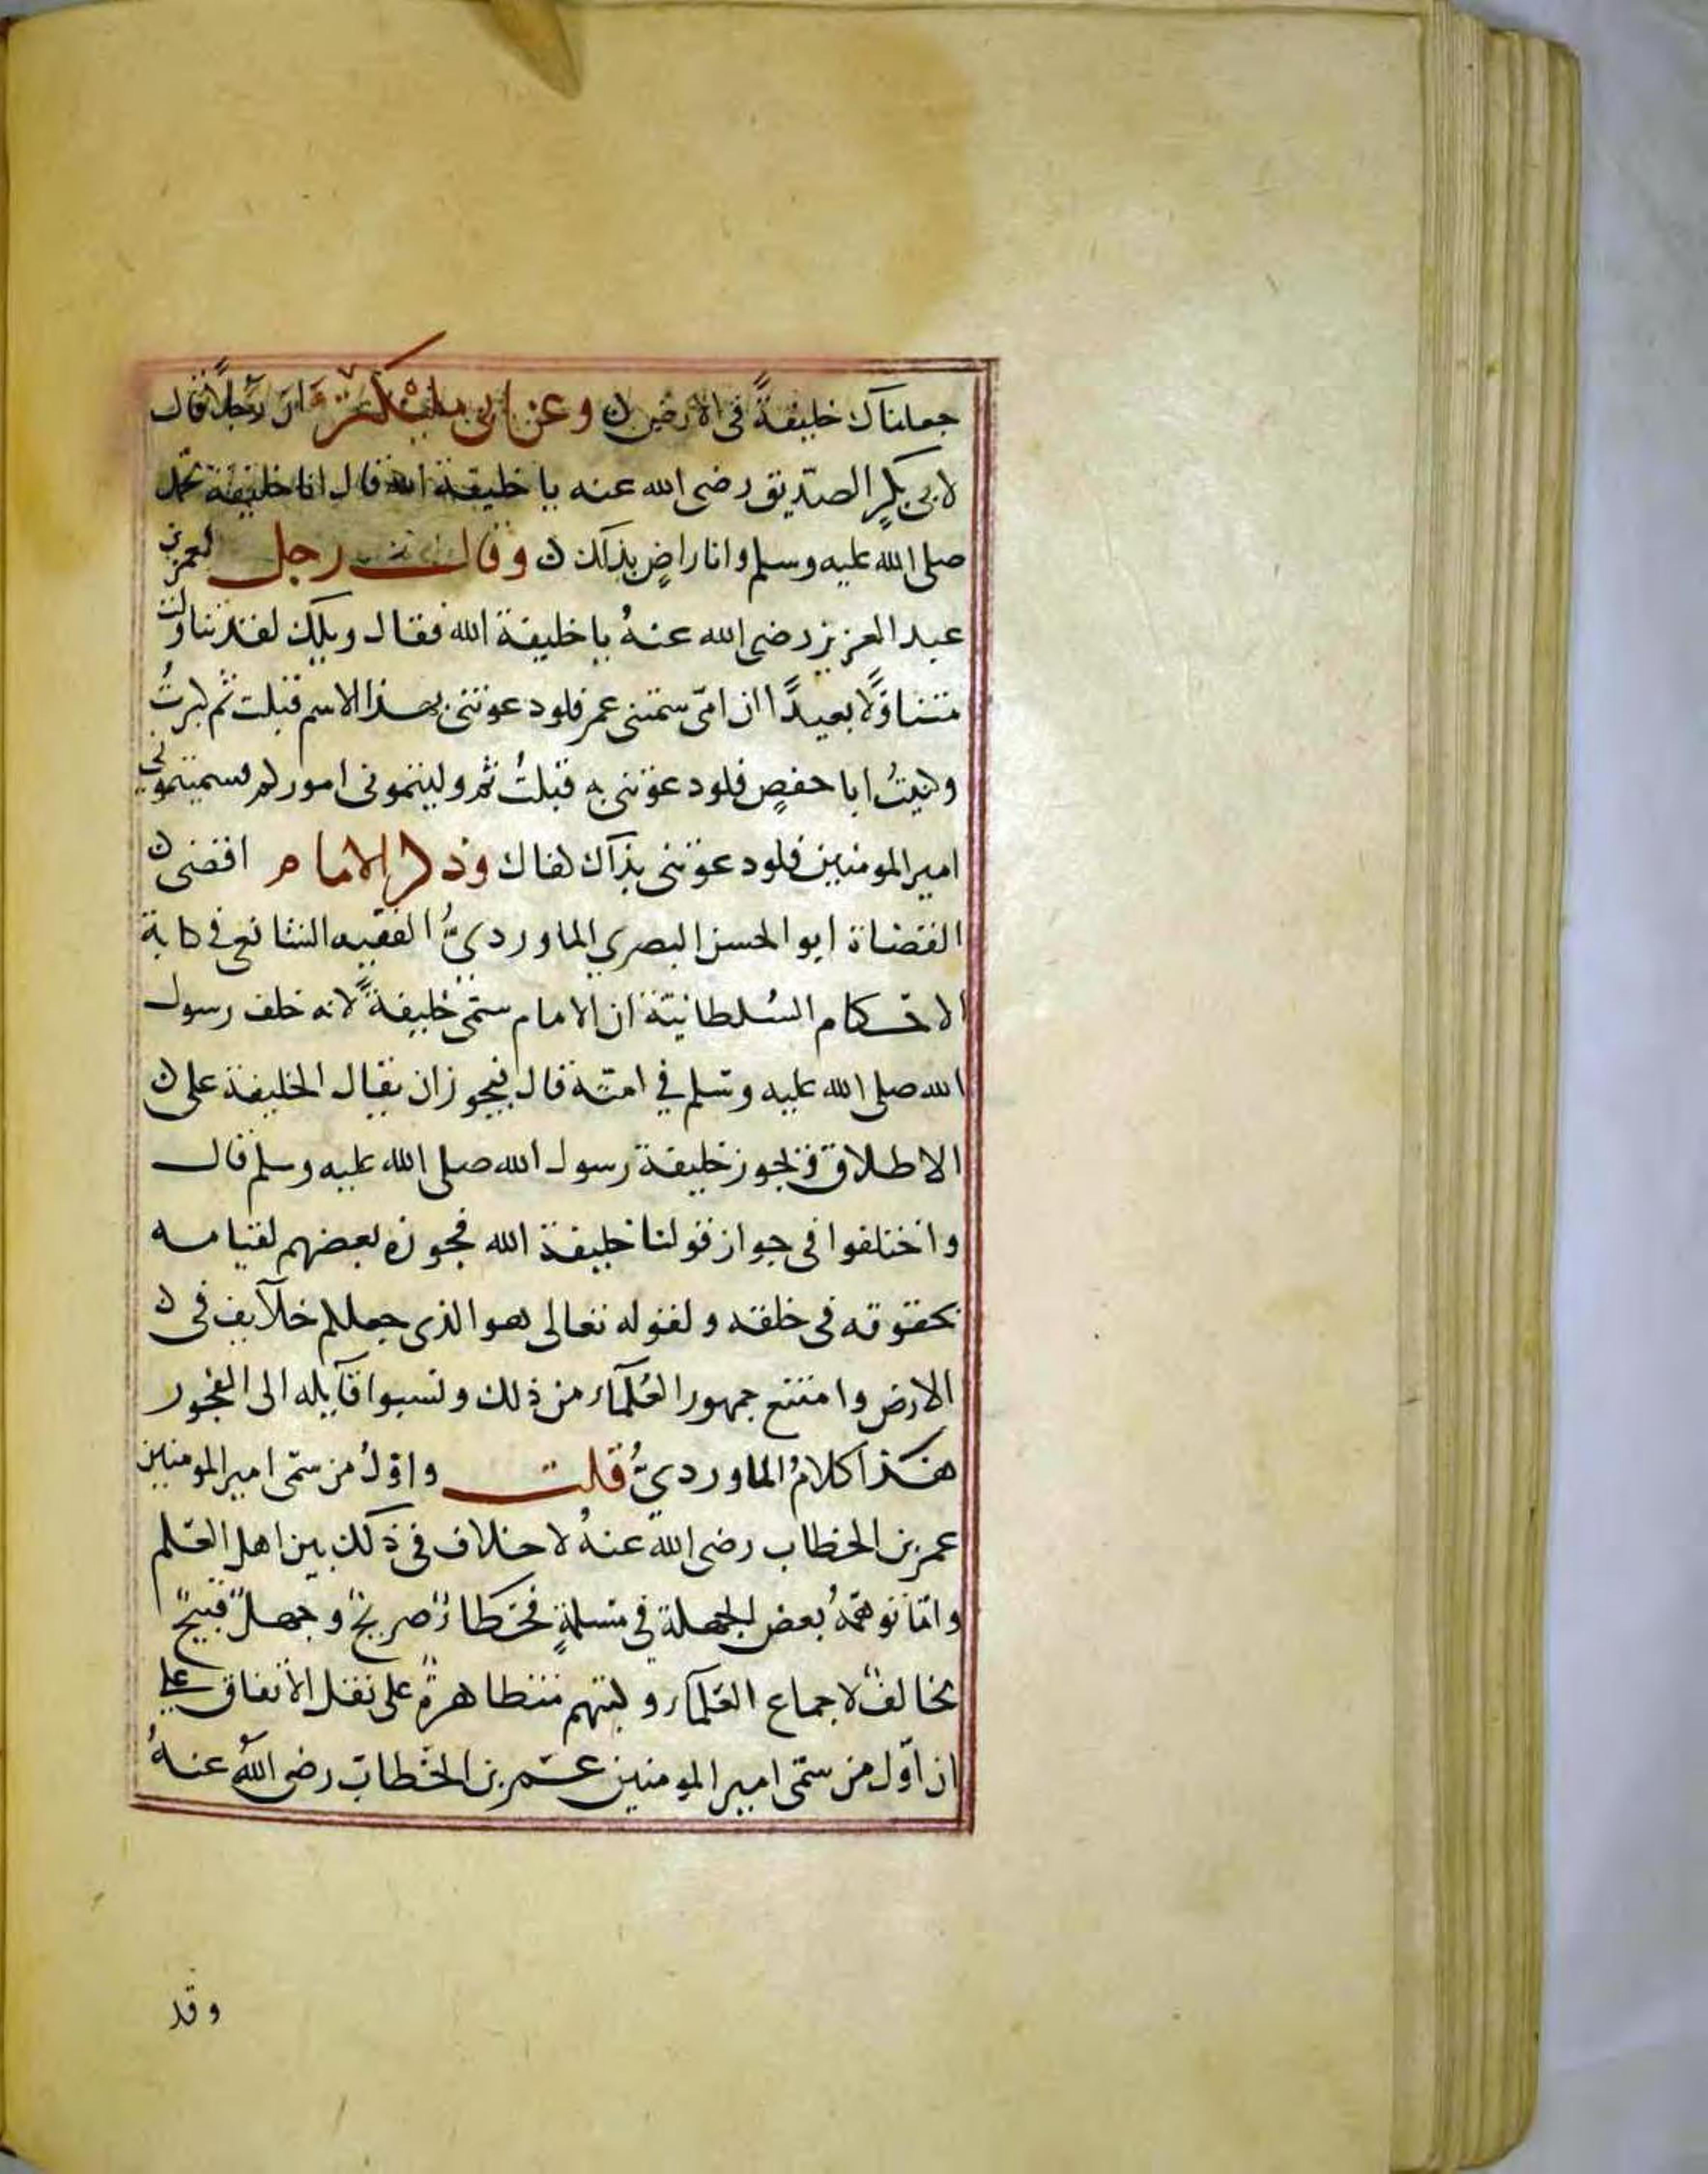 جعلناك خليفةً في الارض ن وعن ابي مليكة ان رجلاً قال
لابي بكرٍ الصديق رضي الله عنه يا خليفة الله فقال انا خليفة محمد
صلى الله عليه وسلم وانا راضٍ بذلك ن وقال رجل لعمر بن
عبد العزيز رضي الله عنهُ يا خليفة الله فقال ويلك لقد تناولت
متناوَلًا بعيدًا ان امّي سمتني عمر فلو دعوتني بهذا الاسم قبلت ثم كبرتُ
وكنيتُ ابا حفصٍ فلو دعوتني به قبلتُ ثم وليتموني اموركم فسميتموني
امير المومنين فلو دعوتني بذاك كفاك وذكر الامام اقضى ن
القضاة ابو الحسن البصري الماورديُّ الفقيه الشافعي في كتابه
الاحكام السُلطانيّة ان الامام سمّي خليفةً لانه خلف رسول
الله صلى الله عليه وسلم في امته قال فيجوز ان يقال الخليفة على ن
الاطلاق ويجوز خليفة رسول الله صلى الله عليه وسلم قال
واختلفوا في جواز قولنا خليفة الله فجوزه بعضهم لقيامه
بحقوقه في خلقه ولقوله تعالى هو الذي جعلكم خلآيف في ن
الارض وامتنع جمهور العُلمآء من ذلك ونسبوا قآيله الى الفجور
هذا كلامُ الماورديُّ قلت واوّلُ من سمّي امير المومنين
عمر بن الخطاب رضي الله عنهُ لا خلاف في ذلك بين اهل العلم
وامّا توهمهُ بعض الجهلة في مسيلمةٍ فخطاءٌ صريحٌ وجهلٌ قبيحٌ
مخالفٌ لاجماع العلمآء وكتبهم متظاهرةٌ على نقل الاتفاق على
ان اوّل من سمّي امير المومنين عمر بن الخطاب رضي الله عنهُ
وقد